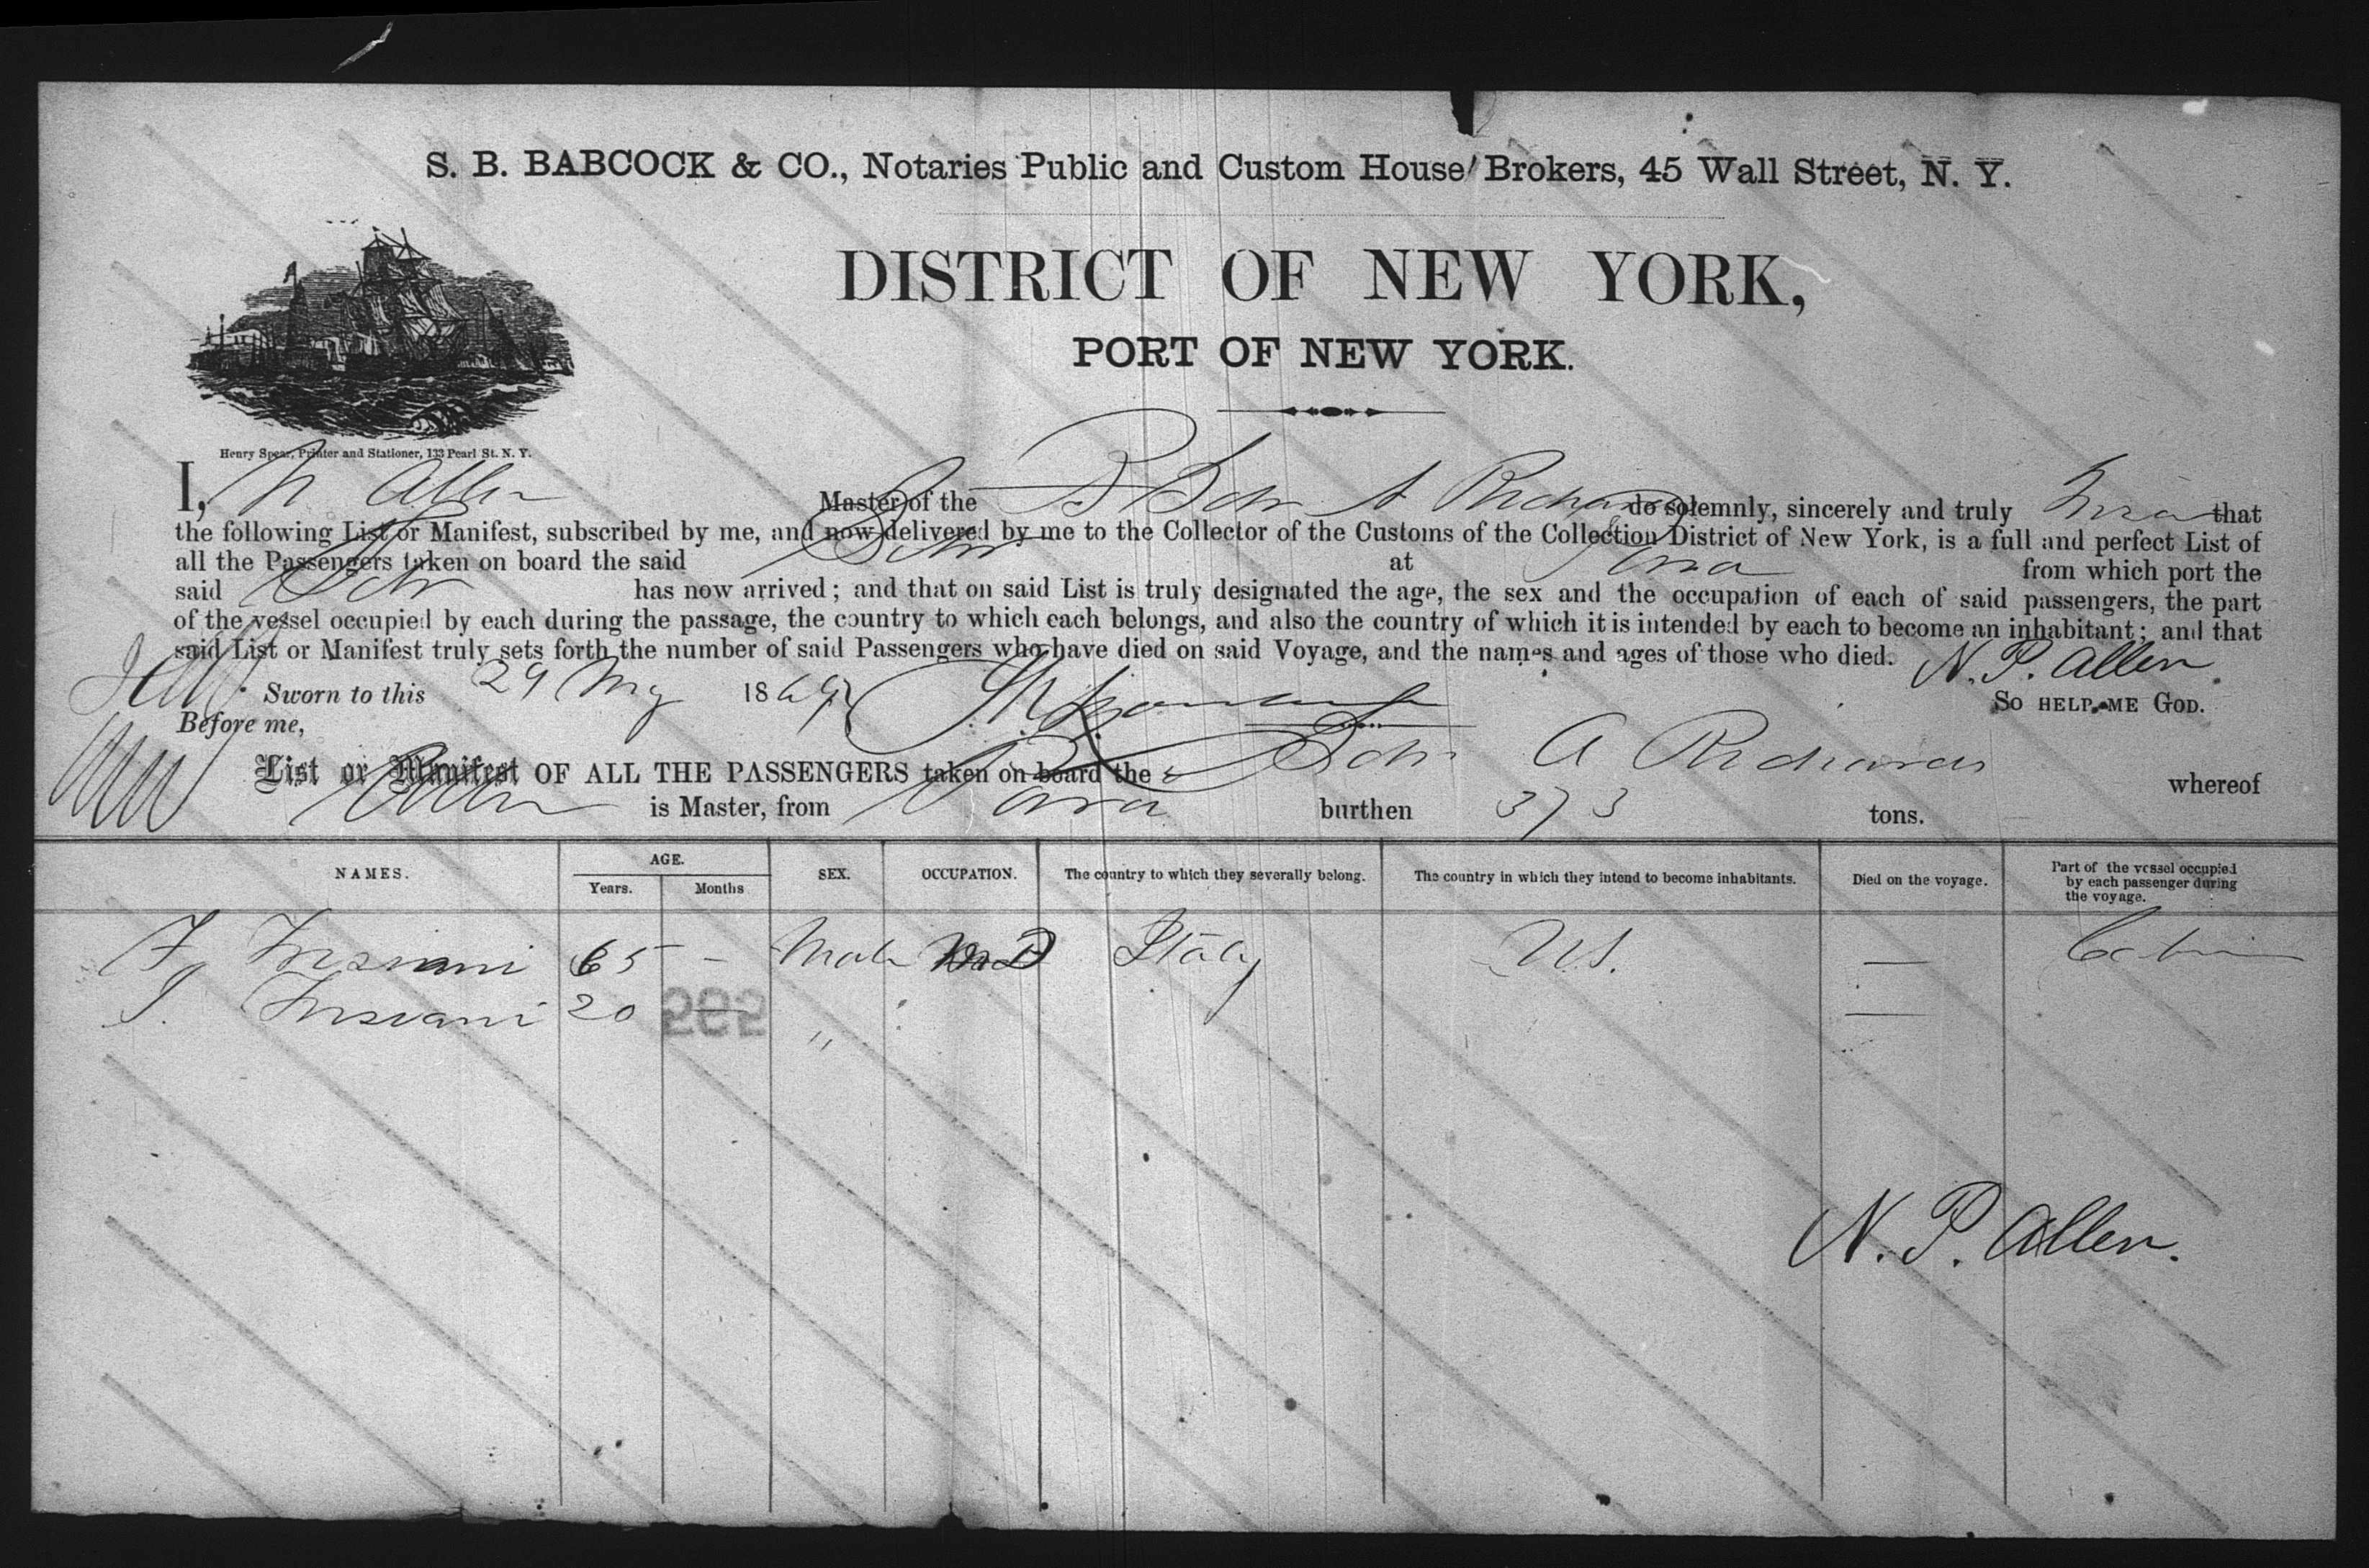 S. B. BABCOCK & CO., Notaries Public and Custom House Brokers, 45 Wall Street, N. Y.
DISTRICT OF NEW YORK,
PORT OF NEW YORK.
Henry Spear, Printer and Stationer, 133 Pearl St. N. Y.
I, N Allen Master of the B Schr A Richards do solemnly, sincerely and truly that
the following List or Manifest, subscribed by me, and now delivered by me to the Collector of the Customs of the Collection District of New York, is a full and perfect List of
all the Passengers taken on board the said Schr at Para from which port the
said Schr has now arrived; and that on said List is truly designated the age, the sex and the occupation of each of said passengers, the part
of the vessel occupied by each during the passage, the country to which each belongs, and also the country of which it is intended by each to become an inhabitant; and that
said List or Manifest truly sets forth the number of said Passengers who have died on said Voyage, and the names and ages of those who died. N. P. Allen
Sworn to this 29 My 1869 SO HELP ME GOD.
Before me,
List or Manifest OF ALL THE PASSENGERS taken on board the Schr A Richards whereof
Allen is Master, from Para burthen 373 tons.
NAMES. AGE. Years. Months SEX. OCCUPATION. The country to which they severally belong. The country in which they intend to become inhabitants. Died on the voyage. Part of the vessel occupied by each passenger during the voyage.
F 65 - Male MD Italy U.S. — Cabin
20 — " —
202
N. P. Allen.